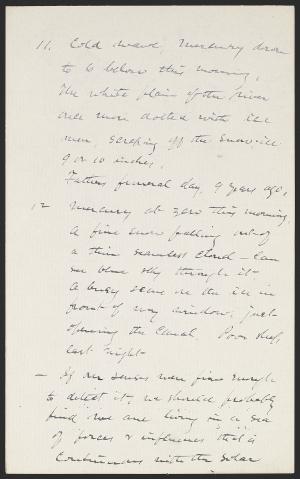 11. Cold wave, mercury down
to 6 below this morning,
The white plain of the river
once more dotted with ice
men, scraping off the snow-ice
9 or 10 inches,
Fathers funeral day, 9 years ago,
12 Mercury at zero this morning,
A fine snow falling out of
a thin seamless cloud - can
see blue sky through it -
A busy scene on the ice in
front of my window, just
opening the canal. Poor sleep
last night -
- If our senses were fine enough
to detect it, we should probably
find we are living in a sea
of forces & influences that is
continuous with the solar